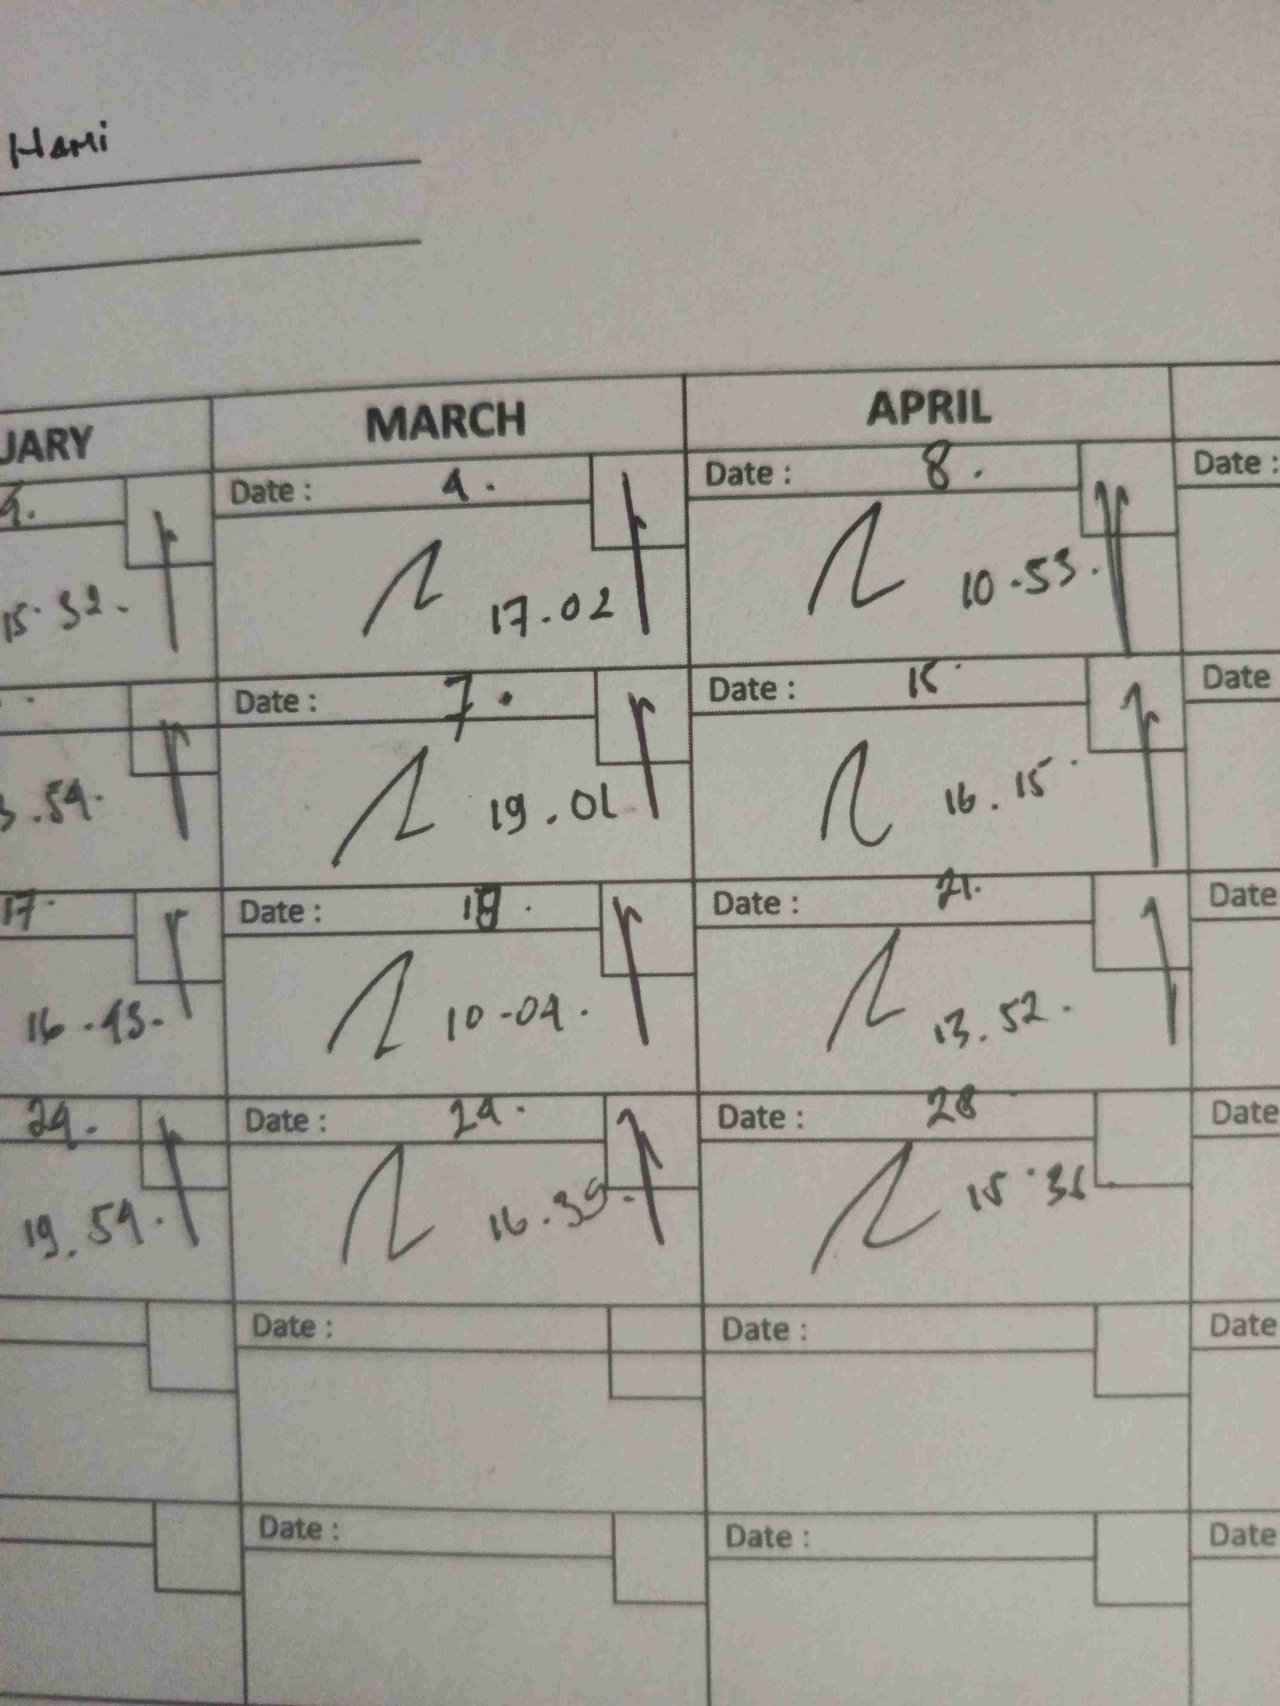 Hami
UARY MARCH APRIL
Date : 4. Date : 8. Date :
15.32. 17.02 10.53.
Date : 7. Date : 15 Date
.54. 19.01 16.15
17. Date : 18. Date : 21. Date
16.43. 10-04. 13.52.
24. Date : 24. Date : 28 Date
19.54. 16.39. 15.36
Date : Date : Date
Date : Date : Date